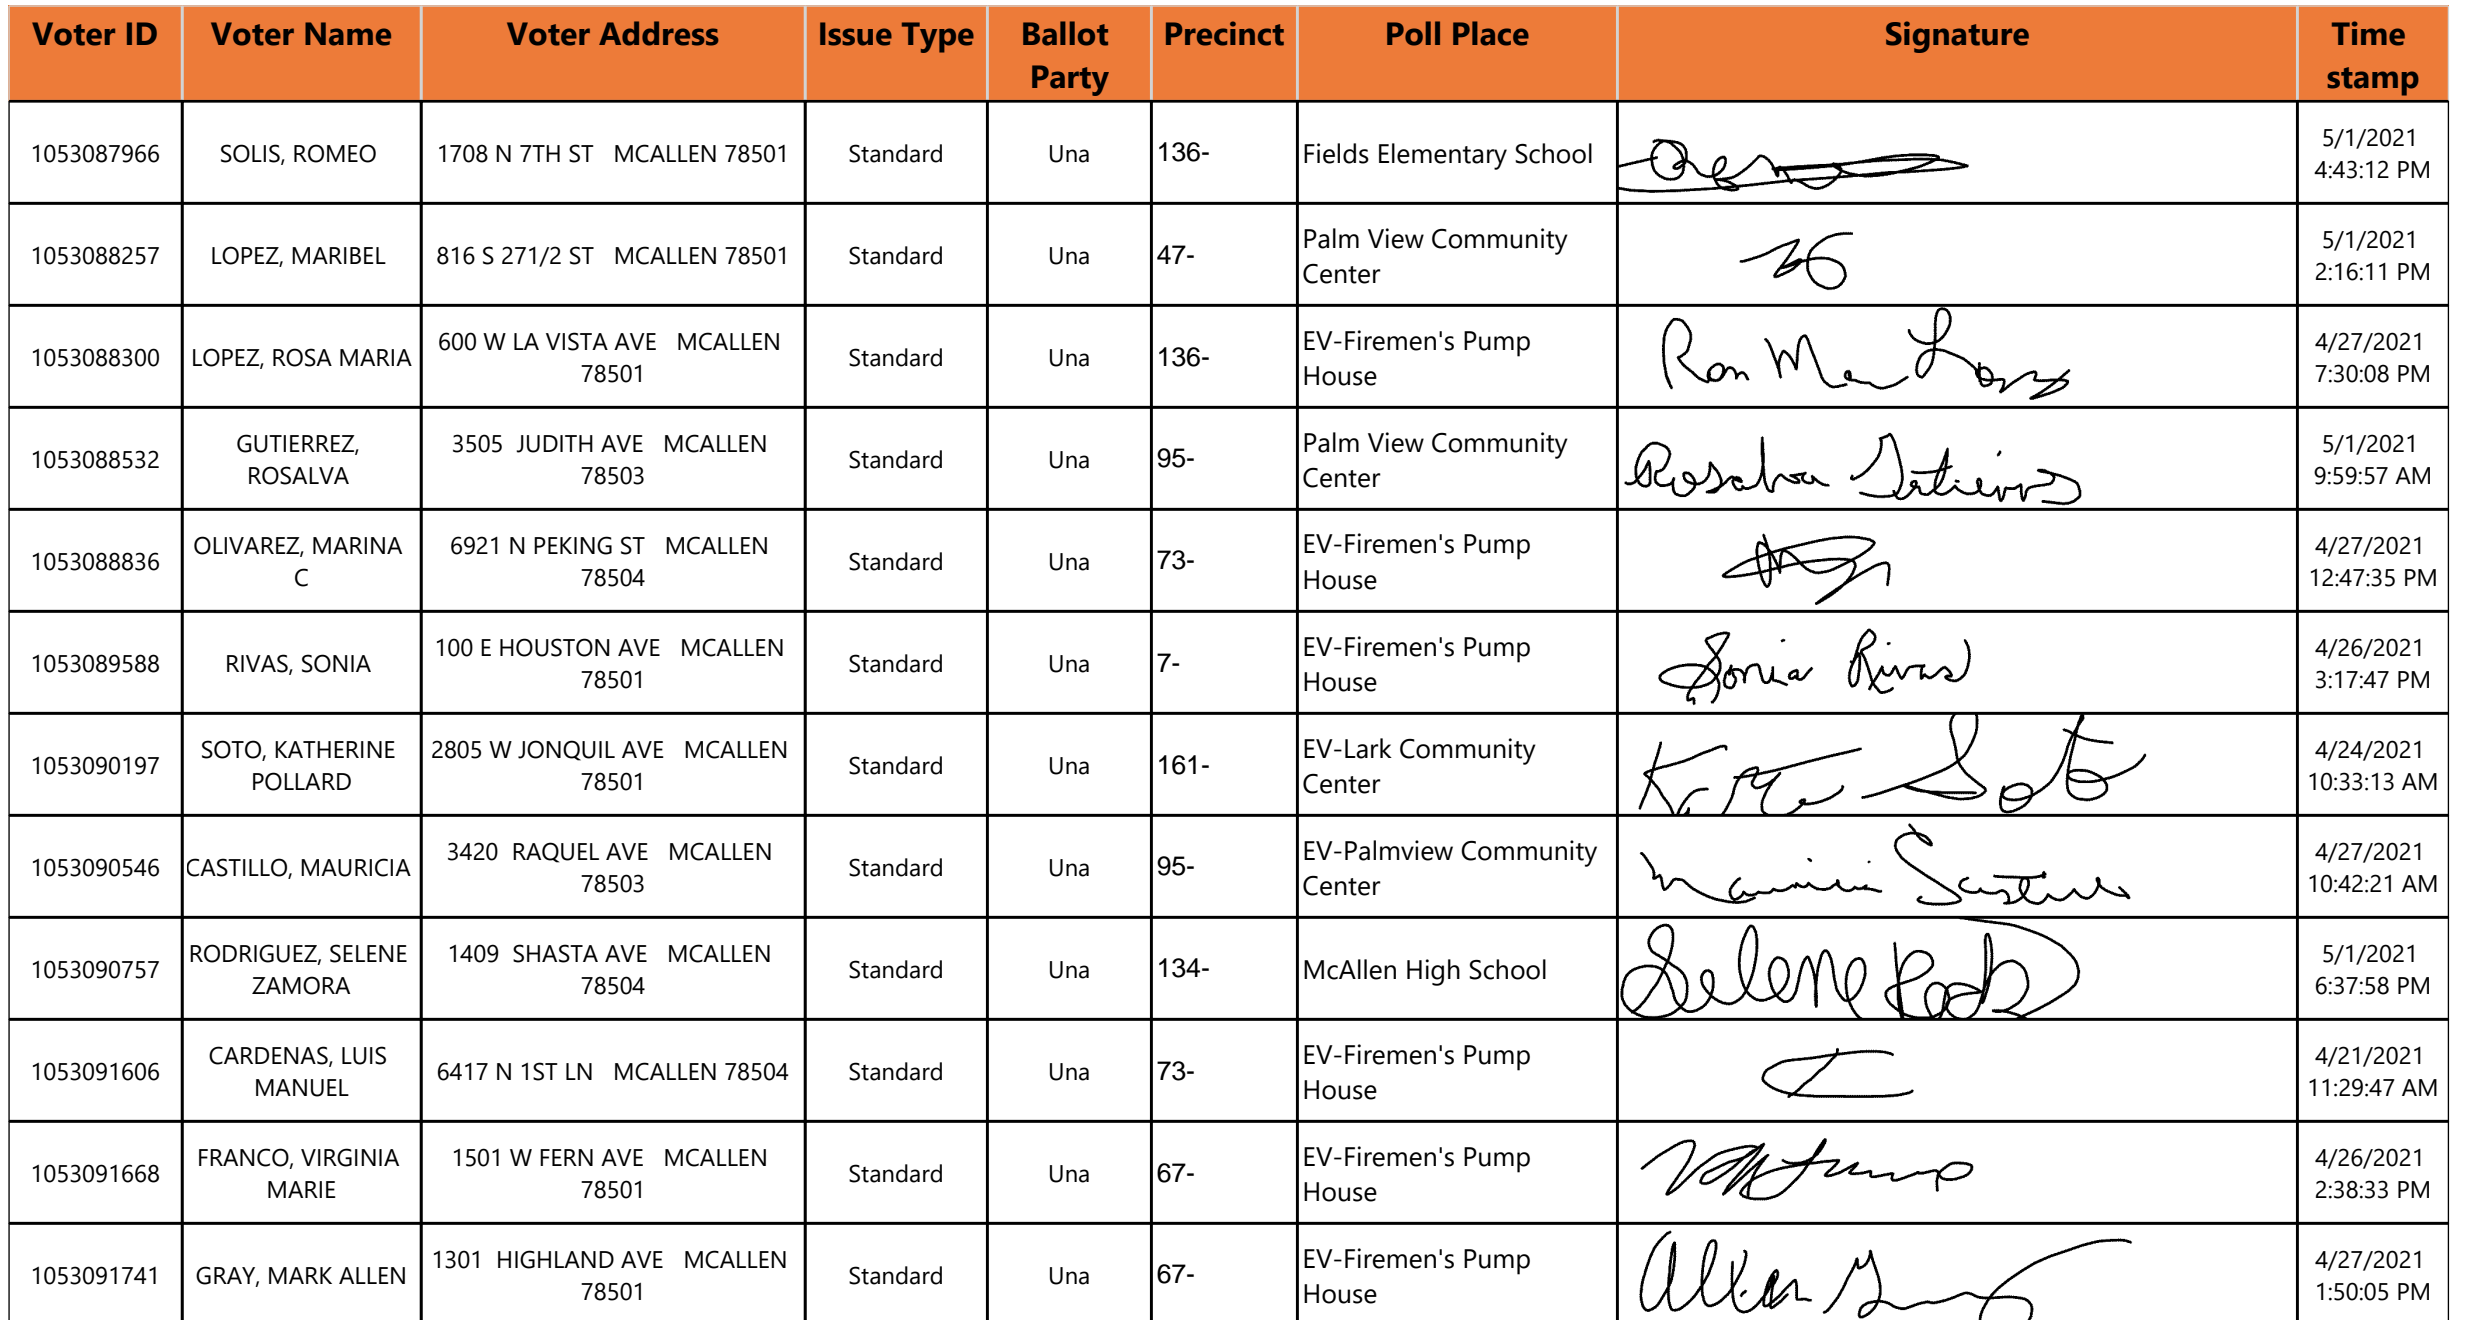 Voter ID Voter Name Voter Address Issue Type Ballot Party Precinct Poll Place Signature Time stamp
1053087966 SOLIS, ROMEO 1708 N 7TH ST MCALLEN 78501 Standard Una 136- Fields Elementary School 5/1/2021 4:43:12 PM
1053088257 LOPEZ, MARIBEL 816 S 271/2 ST MCALLEN 78501 Standard Una 47- Palm View Community Center 5/1/2021 2:16:11 PM
1053088300 LOPEZ, ROSA MARIA 600 W LA VISTA AVE MCALLEN 78501 Standard Una 136- EV-Firemen's Pump House 4/27/2021 7:30:08 PM
1053088532 GUTIERREZ, ROSALVA 3505 JUDITH AVE MCALLEN 78503 Standard Una 95- Palm View Community Center Rosalva 5/1/2021 9:59:57 AM
1053088836 OLIVAREZ, MARINA C 6921 N PEKING ST MCALLEN 78504 Standard Una 73- EV-Firemen's Pump House 4/27/2021 12:47:35 PM
1053089588 RIVAS, SONIA 100 E HOUSTON AVE MCALLEN 78501 Standard Una 7- EV-Firemen's Pump House Sonia Rivas 4/26/2021 3:17:47 PM
1053090197 SOTO, KATHERINE POLLARD 2805 W JONQUIL AVE MCALLEN 78501 Standard Una 161- EV-Lark Community Center Soto 4/24/2021 10:33:13 AM
1053090546 CASTILLO, MAURICIA 3420 RAQUEL AVE MCALLEN 78503 Standard Una 95- EV-Palmview Community Center 4/27/2021 10:42:21 AM
1053090757 RODRIGUEZ, SELENE ZAMORA 1409 SHASTA AVE MCALLEN 78504 Standard Una 134- McAllen High School Selene 5/1/2021 6:37:58 PM
1053091606 CARDENAS, LUIS MANUEL 6417 N 1ST LN MCALLEN 78504 Standard Una 73- EV-Firemen's Pump House 4/21/2021 11:29:47 AM
1053091668 FRANCO, VIRGINIA MARIE 1501 W FERN AVE MCALLEN 78501 Standard Una 67- EV-Firemen's Pump House 4/26/2021 2:38:33 PM
1053091741 GRAY, MARK ALLEN 1301 HIGHLAND AVE MCALLEN 78501 Standard Una 67- EV-Firemen's Pump House Allen 4/27/2021 1:50:05 PM